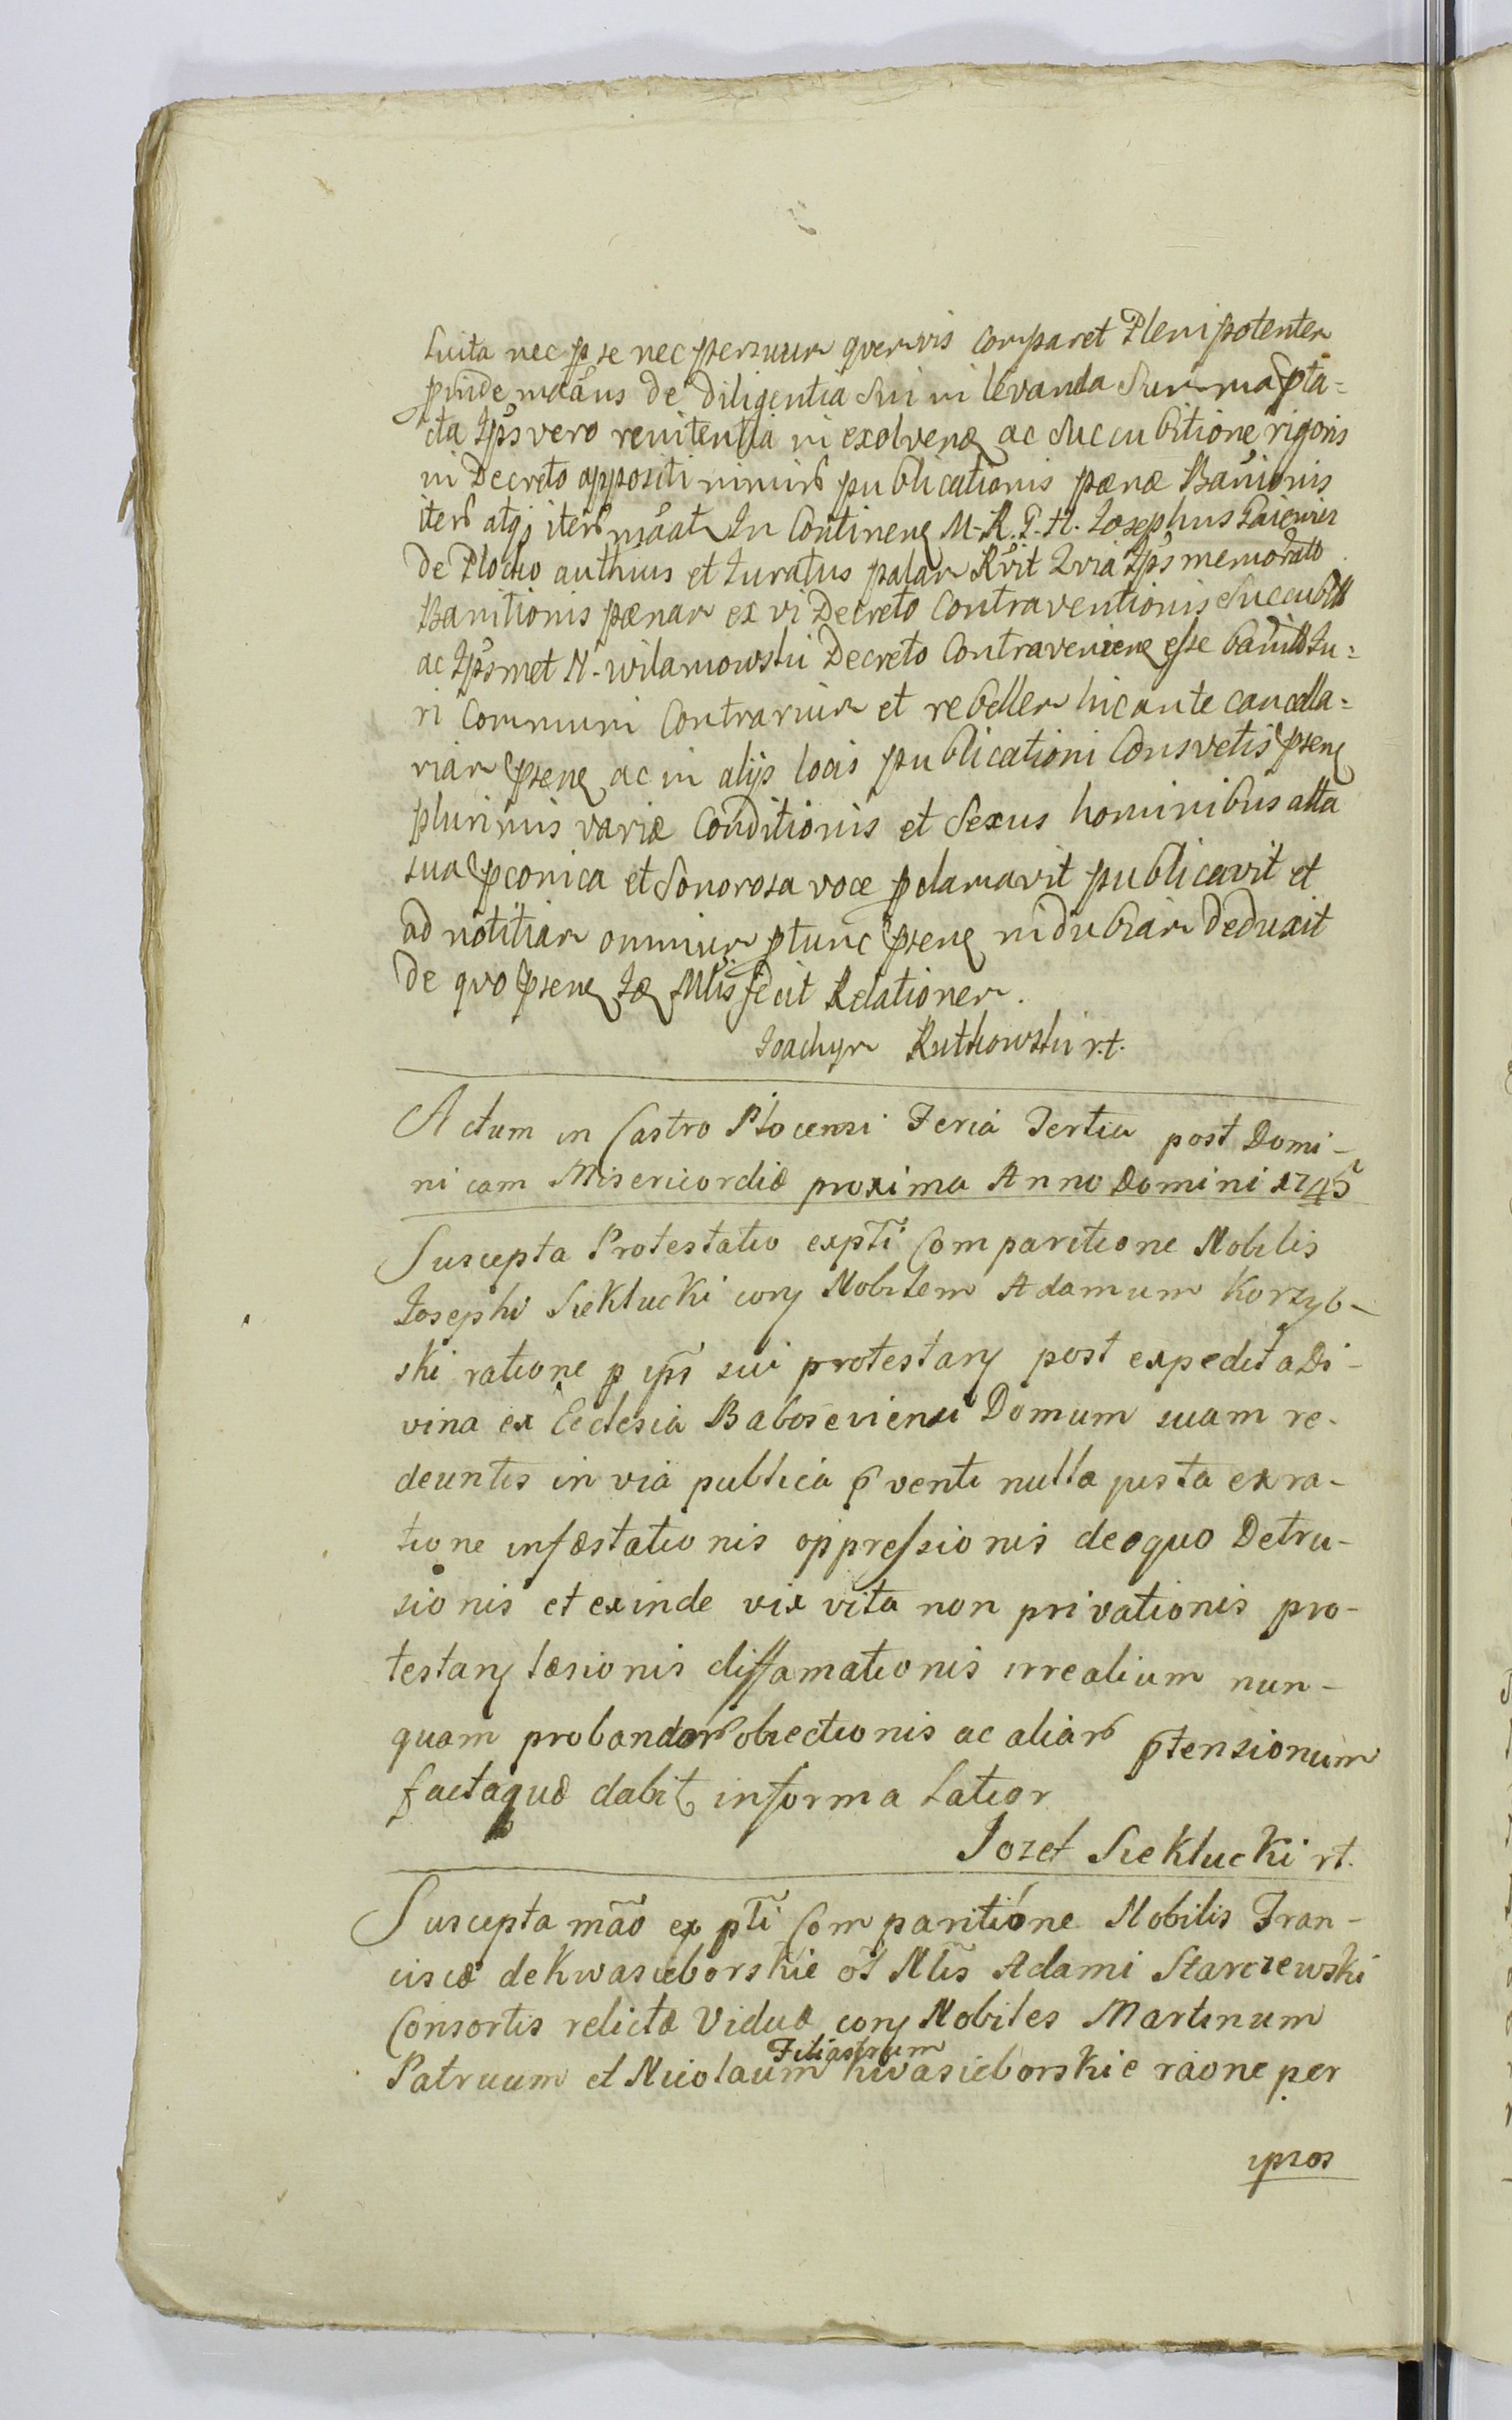 Luita nec p se nec personam quemvis comparet Plenipotentem
proinde mãñus de diligentia sui in levanda summa pta=
cta Ips vero renitentia in exolveñ ac succubitione rigoris
in Decreto appositi nimirũ publicationis pænæ Bañionis
iterũ atq; iterũ mãat In Contineñ M. R. P. H. Josephus
de Plocko authus et Juratus palam Rvit Qvia Ips memorato
Banitionis pænam ex vi Decreto contraventionis succubit
ac Ipsmet N. Wilamowski Decreto Contravenieñ esse banitũ Ju=
ri communi Contrarium et rebellem hic ante cancella=
riam pseñ ac in alijs locis publicationi Consvetis pseñ
plurimis variæ Conditionis et Sexus hominibus alta
sua pconica et Sonorosa voce pclamavit publicavit et
ad notitiam omnium ptunc pseñ indubiam deduxit
de quo pseñ Jã Mtis fecit Relationem.
Joachym Rutkowski r.t.
Actum in Castro Plocensi Feria Tertia post Domi-
nicam Misericordiæ proxima Anno Domini 1745
Suscepta Protestatio expti Comparitione Nobilis
Josephi Sieklucki con Nobilem Adamum Korzyb-
ski ratione p ips sui protestan post expedita Di-
vina ex Ecclesia Baboseviensi Domum suam re-
deuntis in via publica pventi nulla justa ex ra-
tione infæstationis oppressionis de equo Detru-
sionis et exinde vix vita non privationis pro-
testan læsionis diffamationis irrealium nun-
quam probandarũ obiectionis ac aliarũ ptensionum
facta quæ dabit in forma latior
Jozef Sieklucki rt.
Suscepta mão ex pti Comparitione Nobilis Fran-
ciscæ de Kwasieborskie ol Nlis Adami Starczewski
Consortis relictæ Viduæ con Nobiles Martinum
Patruum et Nicolaum Filiastrum Kwasieborskie raone per
ipsos